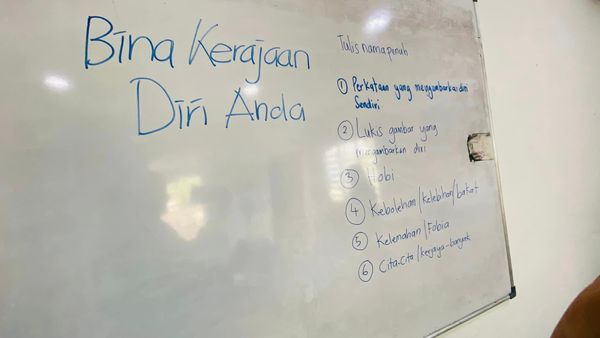 Bina Kerajaan
Diri Anda
Tulis nama penuh
① Perkataan yang menggambarkan diri
Sendiri
② Lukis gambar yang
menggambarkan diri
③ Hobi
④ Kebolehan/kelebihan/bakat
⑤ Kelemahan/Fobia
⑥ Cita-Cita/kerjaya-banyak